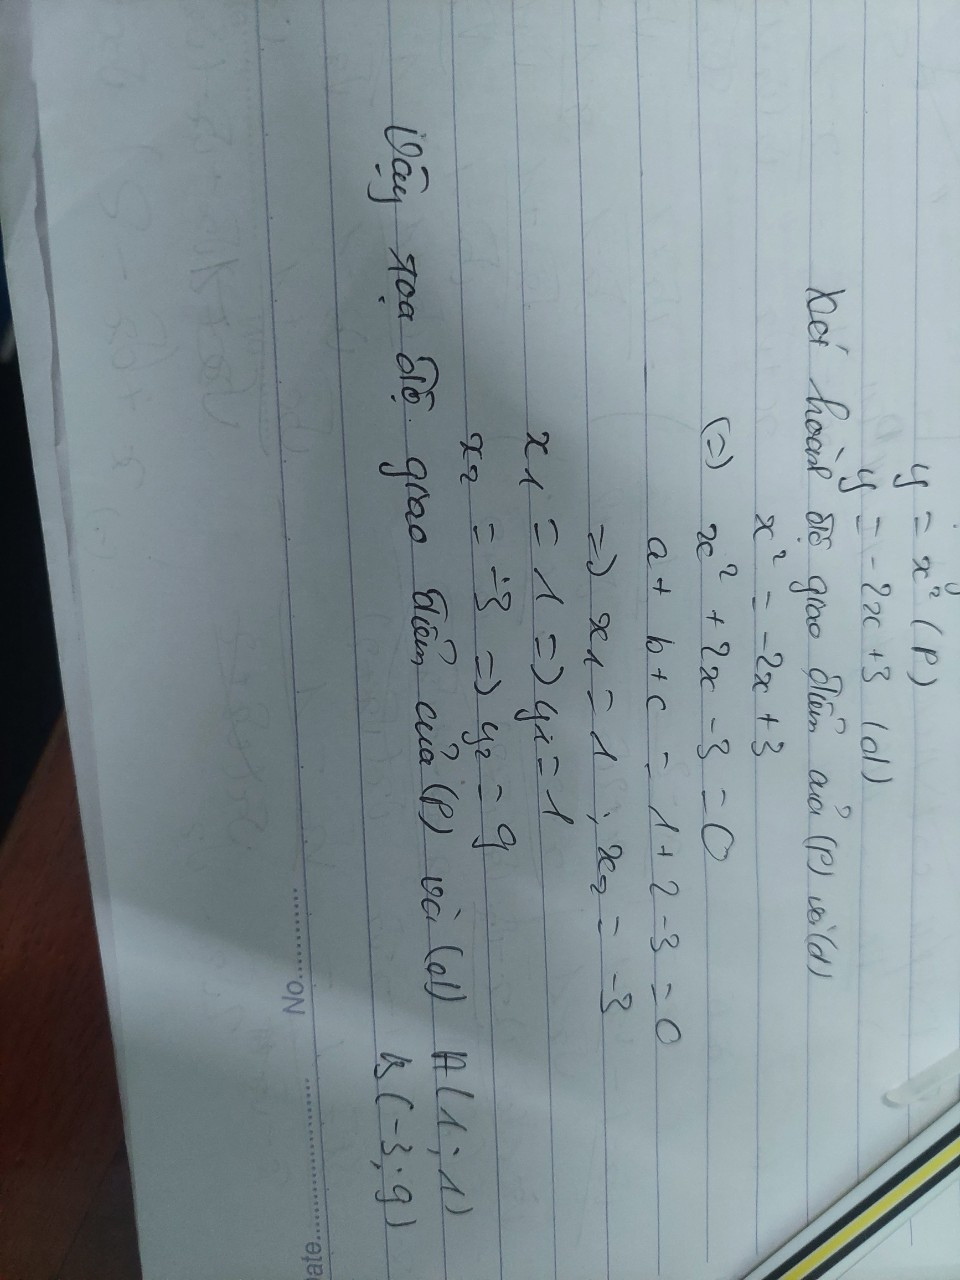 y = x² (P)
y = -2x + 3 (d)
Xét hoành độ giao điểm của (P) với (d)
x² = -2x + 3
(=) x² + 2x - 3 = 0
a + b + c = 1 + 2 - 3 = 0
=) x1 = 1 ; x2 = -3
x1 = 1 =) y1 = 1
x2 = -3 =) y2 = 9
Vậy tọa độ giao điểm của (P) và (d) A (1 ; 1)
B (-3 ; 9)
No.
ate